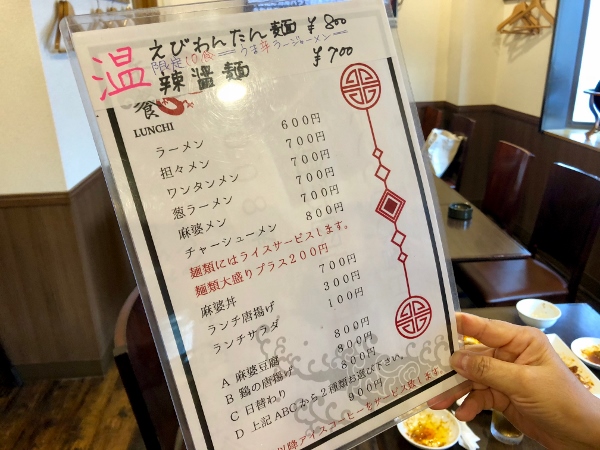 温
えびわんたん麺 ¥800
限定10食 うま辛ラージャーメン
辣醤麺 ¥700
LUNCHI
ラーメン 600円
担々メン 700円
ワンタンメン 700円
葱ラーメン 700円
麻婆メン 700円
チャーシューメン 800円
麺類にはライスサービスします。
麺類大盛りプラス200円
麻婆丼 700円
ランチ唐揚げ 300円
ランチサラダ 100円
A 麻婆豆腐 800円
B 鶏の唐揚げ 800円
C 日替わり 800円
D 上記ABCから2種類お選び下さい。
900円
以降アイスコーヒーをサービス致します。